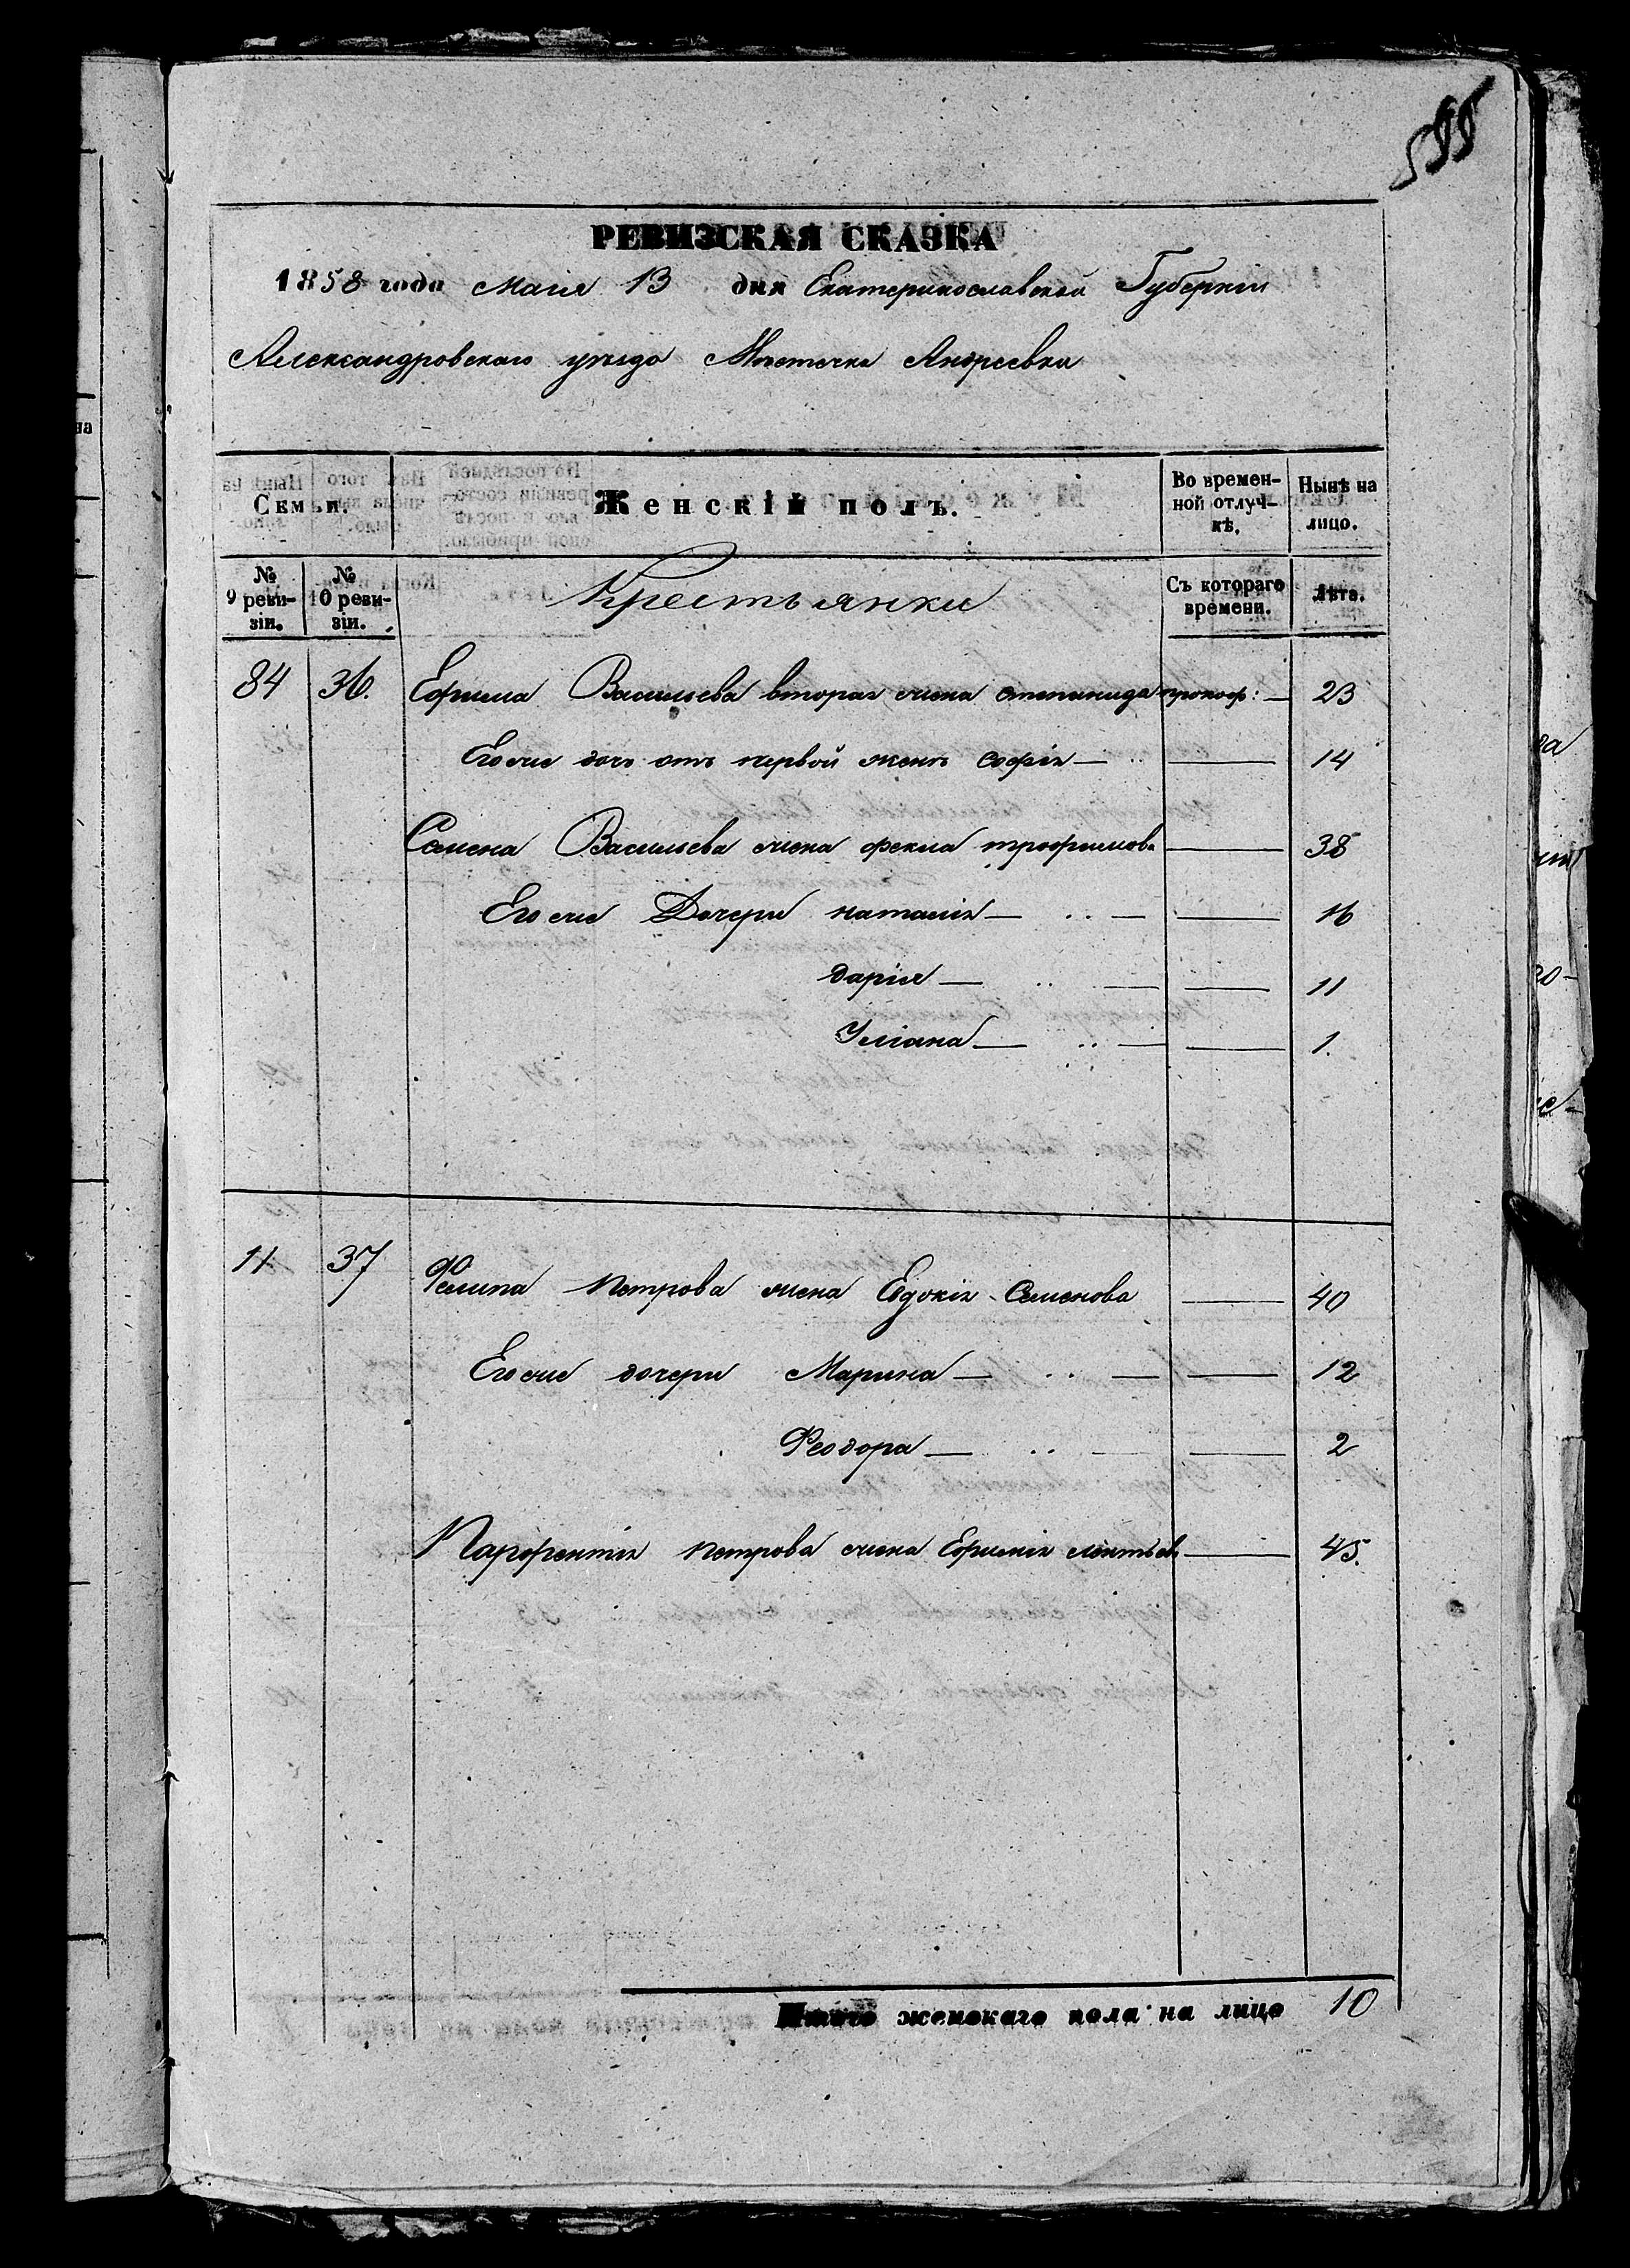 555
РЕВИЗСКАЯ СКАЗКА
1858 года Маія 13 дня Екатеринославской Губерніи
Александровскаго уѣзда Мѣстечка Андреевки
Семьи.
Женскій полъ.
Во времен-
ной отлуч-
кѣ.
Нынѣ на
лицо.
№
9 реви-
зіи.
№
10 реви-
зіи.
Крестьянки
Съ котораго
времени.
Лѣта.
84 36. Ефима Васильева вторая жена степанида прокоф: — 23
Его же дочь отъ первой жены софія — 14
Семена Васильева жена фекла трофимова — 38
Его же Дочери наталія — 16
дарія — 11
Уліана — 1.
11 37 Филипа Петрова жена Евдокія Семенова — 40
Его же дочери Марина — 12
Феодора — 2
Парфентія петрова жена Ефимія леонтьев — 45.
Итого женскаго пола на лицо 10